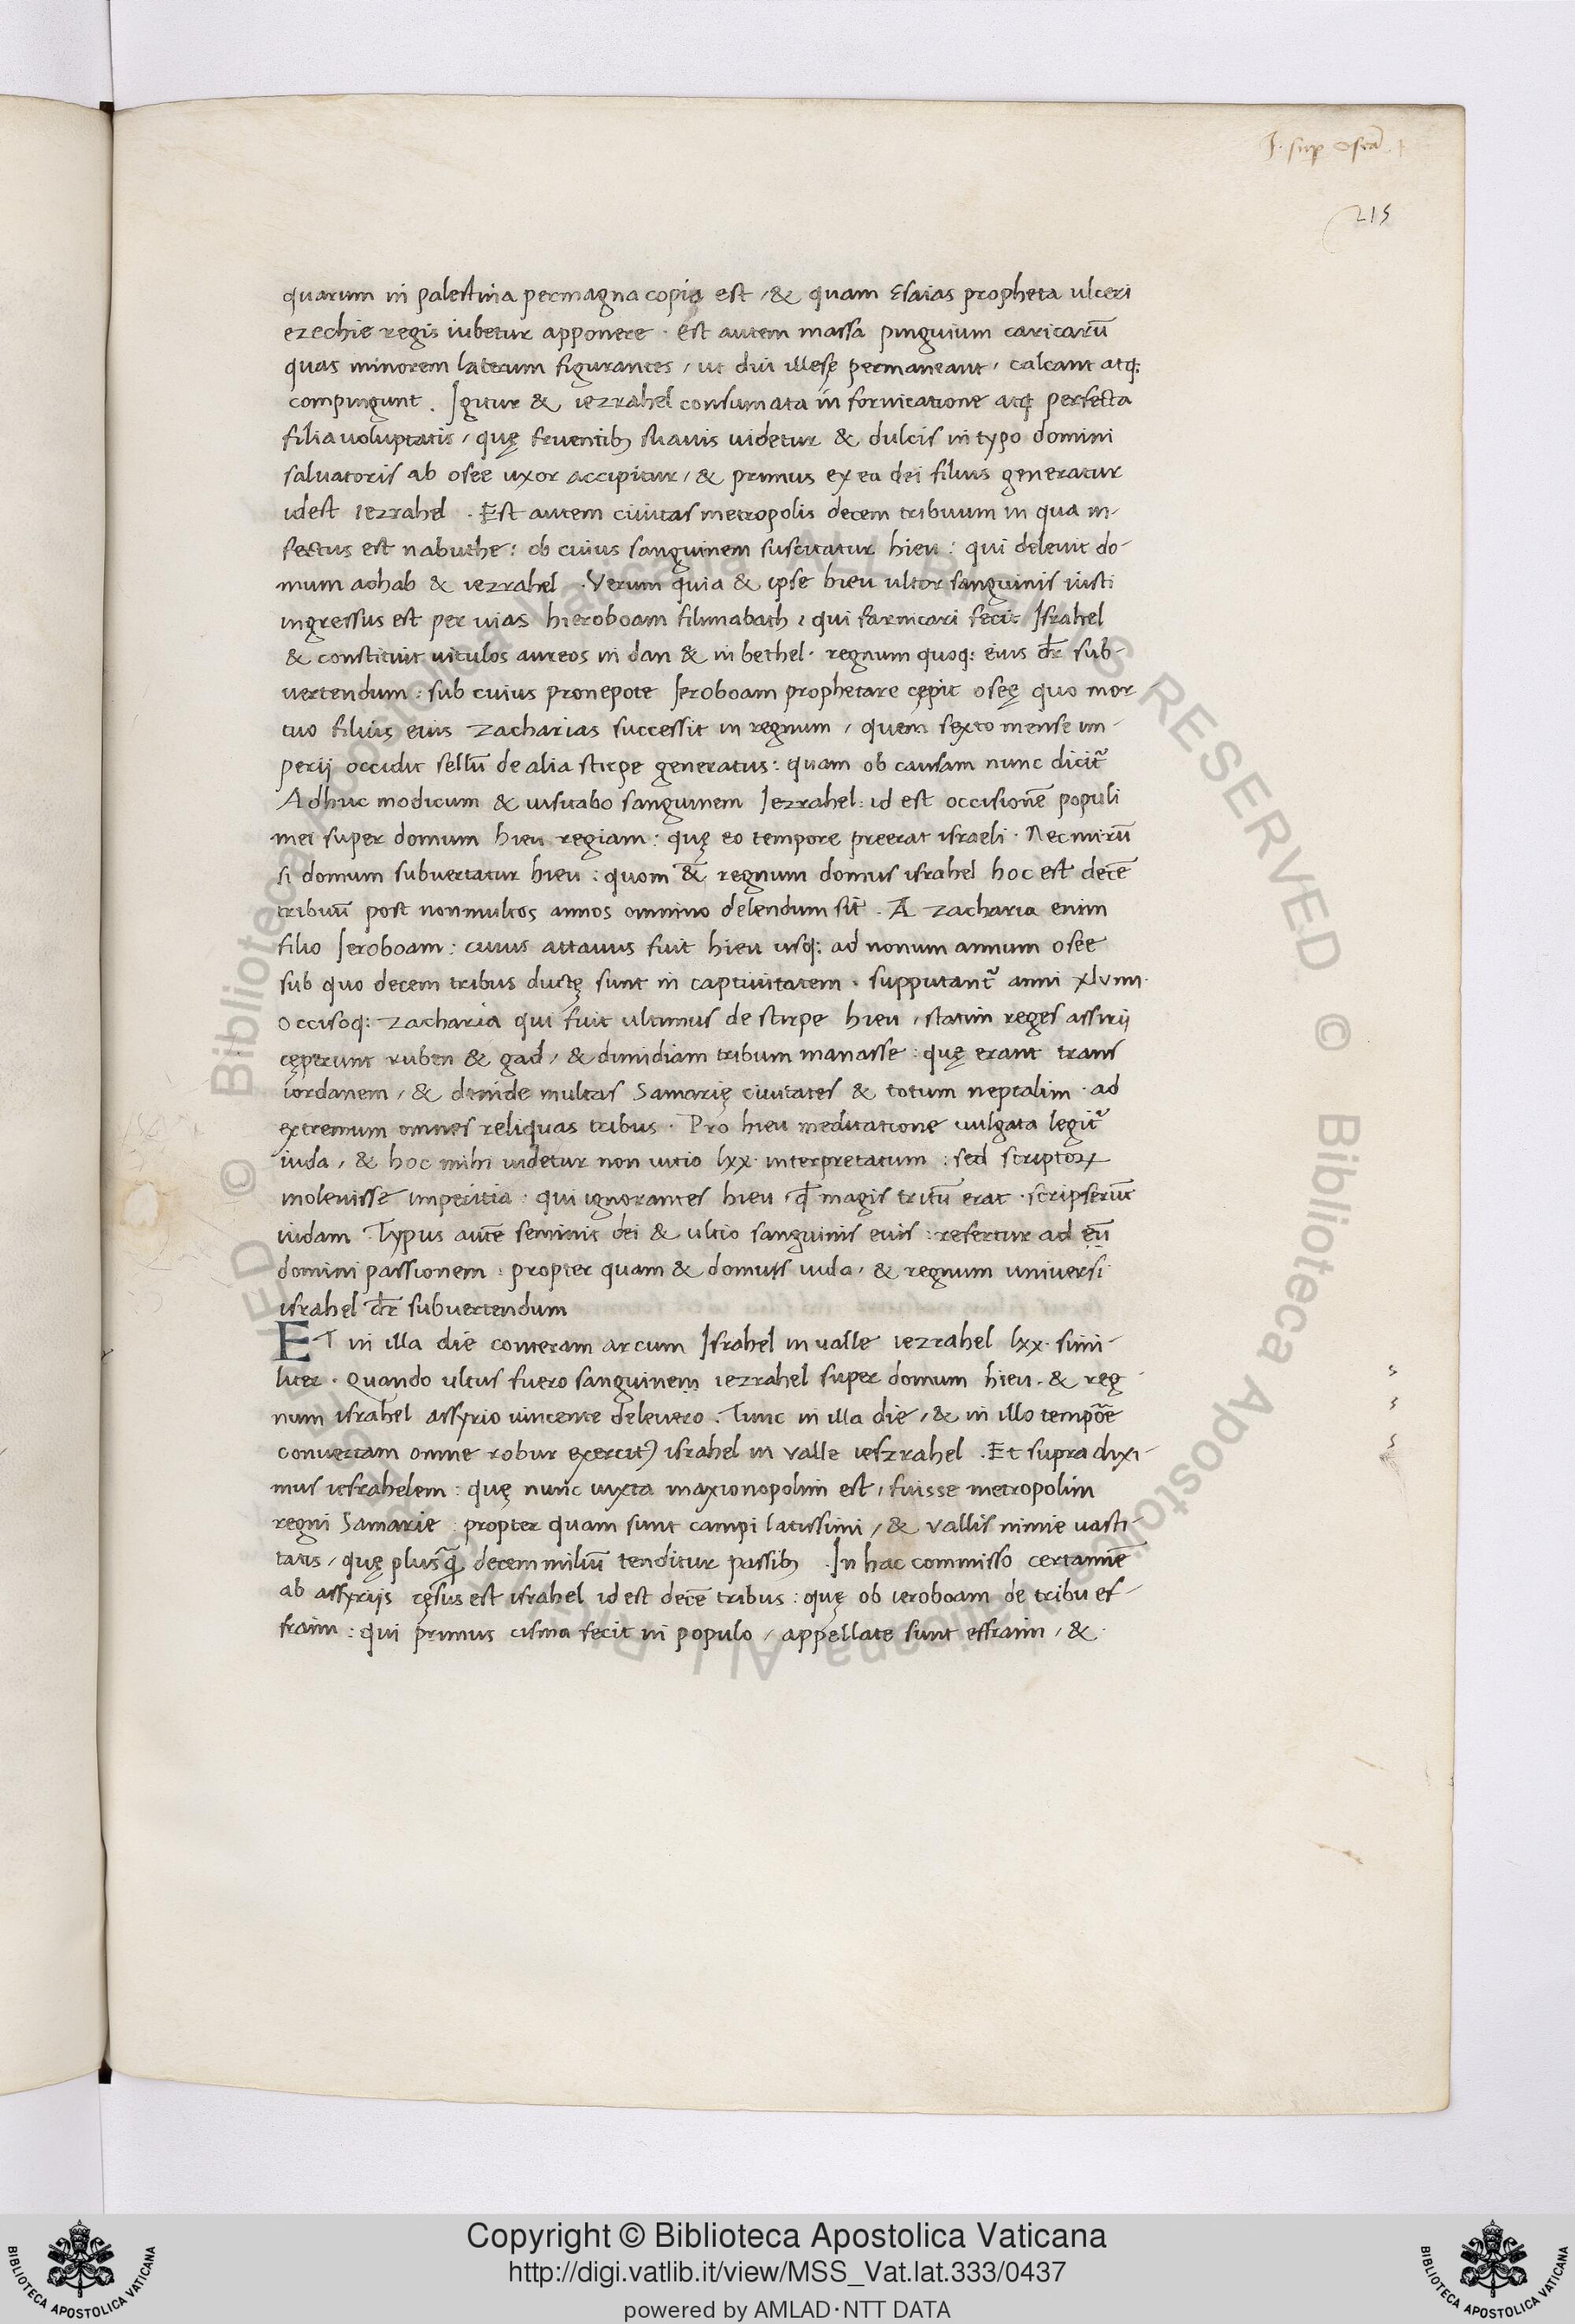 J. sup oseā
215
quarum in palestina permagna copia est, & quam Esaias propheta ulceri
ezechie regis iubetur apponere. Est autem massa pinguium caricarū
quas minorem laterum figurantes, ut diu illesę permaneant, calcant atq:
compingunt. Igitur & iezrahel consumata in fornicatione atq perfecta
filia uoluptatis, quę fruentib; suauis uidetur & dulcis in typo domini
saluatoris ab osee uxor accipitur, & primus ex ea dei filius generatur
idest iezrahel. Est autem ciuitas metropolis decem tribuum in qua in-
fectus est nabuthe: ob cuius sanguinem suscitatur hieu: qui deleuit do-
mum achab & iezrahel. Verum quia & ipse hieu ultor sanguinis iusti
ingressus est per uias hieroboam filii nabath, qui farnicari fecit Israhel
& constituit uitulos aureos in dan & in bethel. regnum quoq: eius dr̄ sub-
uertendum: sub cuius pronepote Ieroboam prophetare cępit oseę quo mor
tuo filius eius zacharias successit in regnum, quem sexto mense im-
perij occidit sellū de alia stirpe generatus: quam ob causam nunc dicit̃
Adhuc modicum & uisitabo sanguinem Iezrahel: id est occisionē populi
mei super domum hieu regiam: quę eo tempore preerat israeli. Nec mirū
si domum subuertatur hieu: quom &̄ regnum domus israhel hoc est decē
tribuū post non multos annos omnino delendum sit. A zacharia enim
filio Ieroboam: cuius attauus fuit hieu usq: ad nonum annum osee
sub quo decem tribus ductę sunt in captiuitatem. supputant̃ anni xlviiii.
occisoq: zacharia qui fuit ultimus de stirpe hieu, statim reges assirij
cęperunt ruben & gad, & dimidiam tribum manasse: quę erant trans
iordanem, & deinde multas Samarię ciuitates & totum neptalim. ad
extremum omnes reliquas tribus. Pro hieu meditatione uulgata legit̃
iuda, & hoc mihi uidetur non uitio lxx. interpretatum: sed scriptoꝝ
inoleuisse imperitia. qui ignorantes hieu, qđ magis tritū erat. scripserūt
iudam. Typus autē seminis dei & ultio sanguinis eius: refertur ad eū
domini passionem: propter quam & domus iuda, & regnum uniuersi
israhel dr̄ subuertendum
ET in illa die conteram arcum Israhel in ualle iezrahel lxx. simi-
liter. Quando ultus fuero sanguinem iezrahel super domum hieu. & reg
num israhel assyrio uincente deleuero. Tunc in illa die, & in illo tempōe
conuertam omne robur exercit9 israhel in valle ieszrahel. Et supra dixi-
mus iesrahelem: quę nunc iuxta maxionopolim est, fuisse metropolim
regni Samarie: propter quam sunt campi latissimi, & vallis nimie uasti-
tatis, quę plusq̄ decem miliū tenditur passib; . In hac commisso certaminē
ab assyrijs cęsus est israhel id est decē tribus: quę ob ieroboam de tribu ef-
fraim: qui primus cisma fecit in populo, appellate sunt effraim, &
Copyright © Biblioteca Apostolica Vaticana
http://digi.vatlib.it/view/MSS_Vat.lat.333/0437
powered by AMLAD·NTT DATA